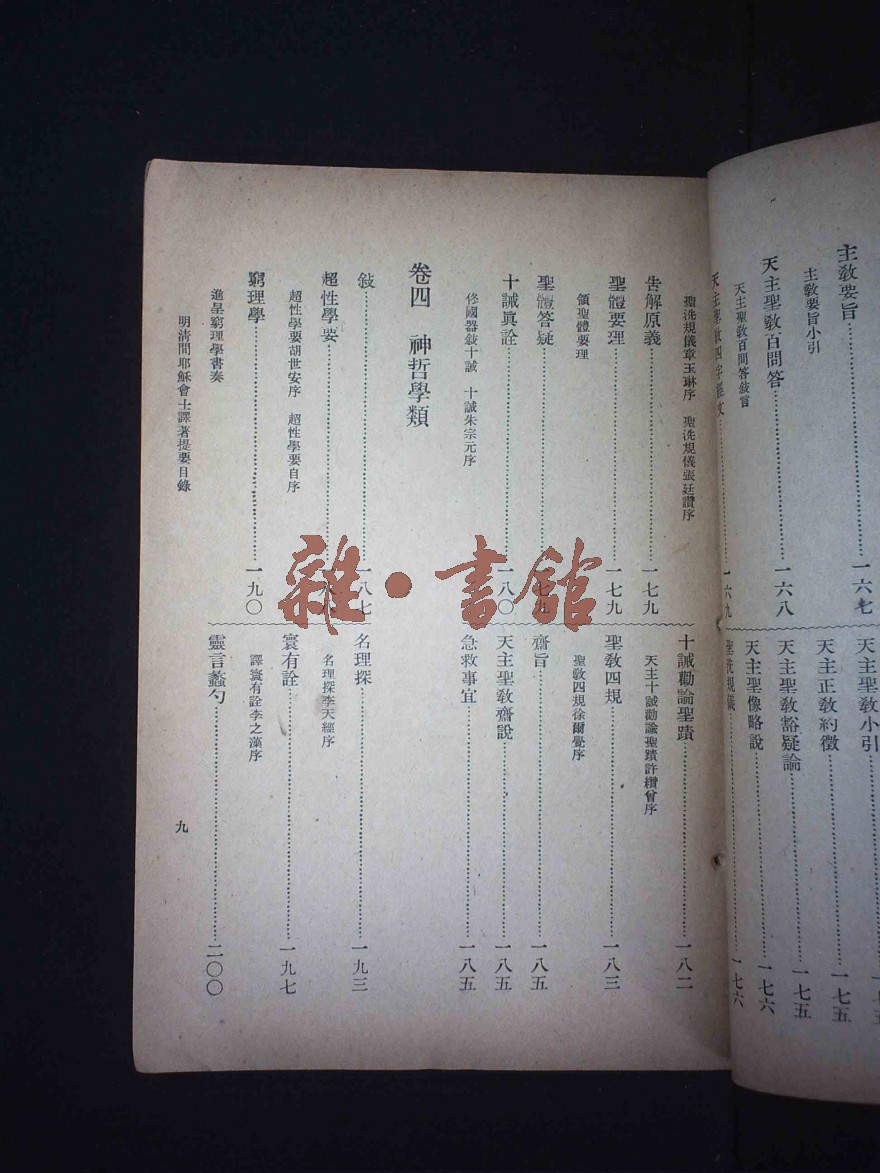 主教要旨……一六七
主教要旨小引
天主聖教百問答……一六八
天主聖教百問答敍言
天主聖教四字經文……一六九
天主聖教小引……
天主正教約徵……一七五
天主聖教豁疑論……一七五
天主聖像略說……一七六
聖洗規儀……一七六
聖洗規儀章玉琳序　聖洗規儀張廷讚序
告解原義……一七九
聖體要理……一七九
領聖體要理
聖體答疑……一七九
十誡眞詮……一八〇
佟國器敍十誡　十誡朱宗元序
卷四　神哲學類
敍……一八七
超性學要……一八
超性學要胡世安序　超性學要自序
窮理學……一九〇
進呈窮理學書奏
十誡勸論聖蹟……一八二
天主十誡勸論聖蹟許纘曾序
聖教四規……一八三
聖教四規徐爾覺序
齋旨……一八五
天主聖教齋說……一八五
急救事宜……一八五
名理探……一九三
名理探李天經序
寰有詮……一九七
譯寰有詮李之藻序
靈言蠡勺……二〇〇
明清間耶穌會士譯著提要目錄
九
雜·書館